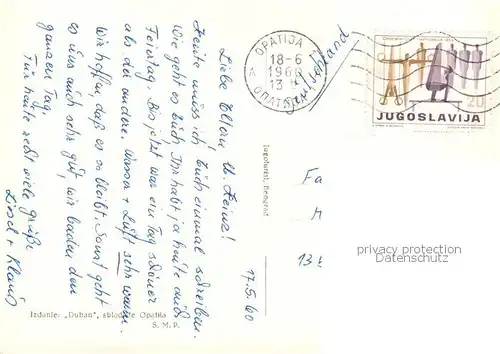 Liebe Eltern u. Heinz!
Heute muss ich Euch einmal schreiben.
Wie geht es Euch Ihr habt ja heute auch
Feiertag. Bis jetzt war ein Tag schöner
als der andere. Wasser + Luft sehr warm.
Wir hoffen daß es so bleibt. Sonst geht
es uns auch sehr gut, wir baden den
ganzen Tag.
Für heute seid viele grüße
Liesel + Klaus
17.5.60
OPATIJA
18-6
1960
13
A OPATIJA
JUGOSLAVIJA
20
Jugoturist, Beograd
Fa
13
Izdanje: „Duhan", skladište Opatija
S. M. P.
privacy protection
Datenschutz